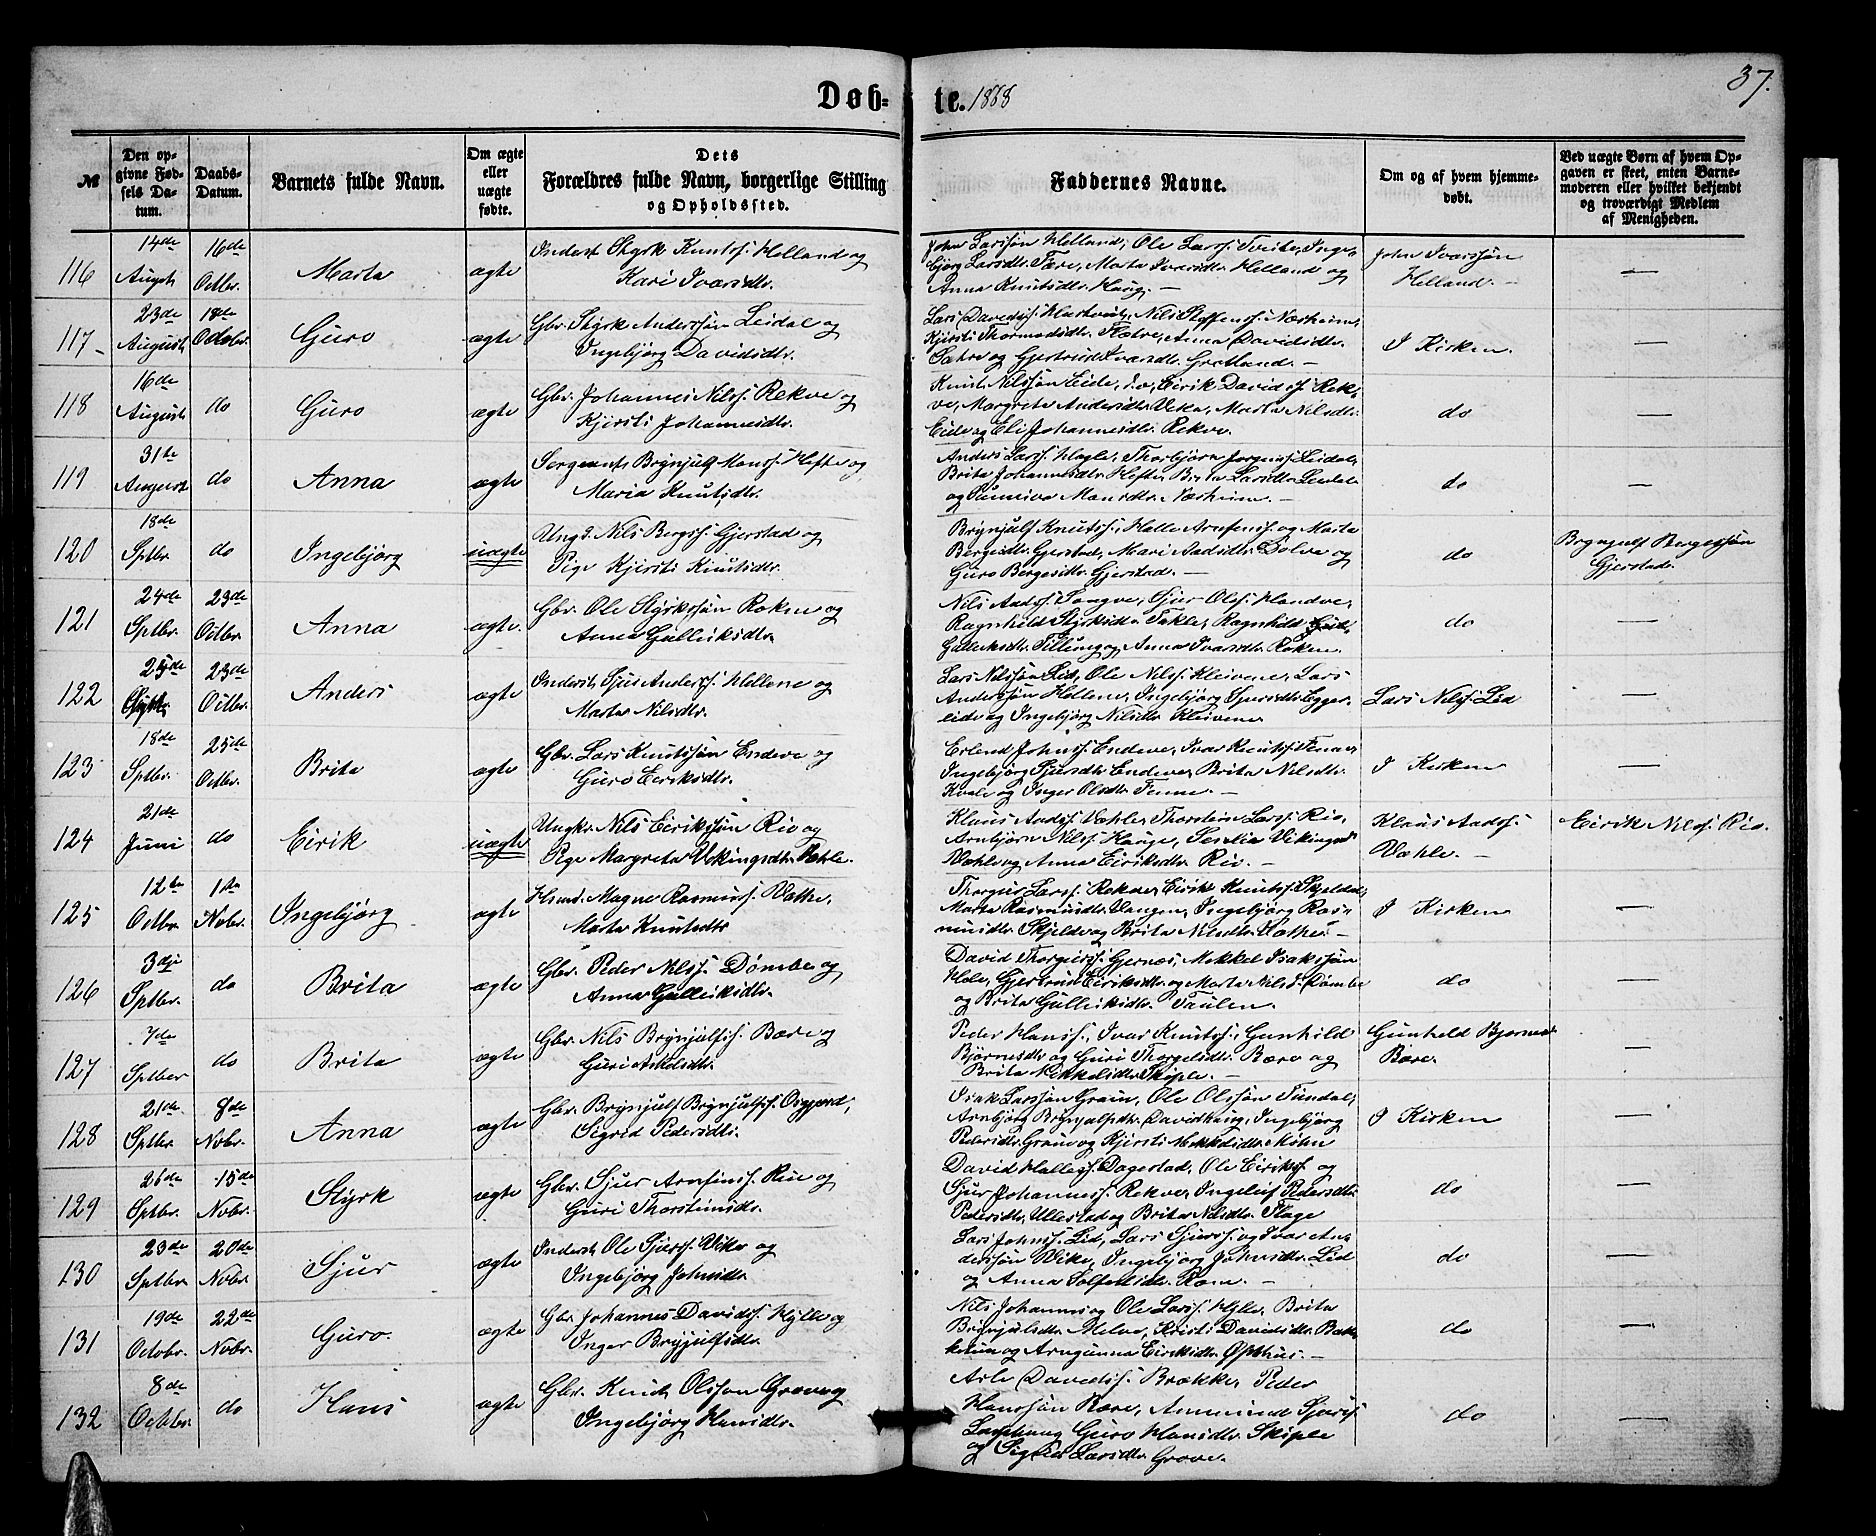 Døb=
te. 1868
37.
№
Den op-
givne Fød-
sels Da-
tum.
Daabs-
Datum.
Barnets fulde Navn.
Om ægte
eller
uægte
fødte.
Dets
Forældres fulde Navn, borgerlige Stilling
og Opholdssted.
Faddernes Navne.
Om og af hvem hjemme-
døbt.
Ved uægte Børn af hvem Op-
gaven er skeet, enten Barne-
moderen eller hvilket bekjendt
og troværdigt Medlem
af Menigheden.
116
14de
August
16de
Octbr.
Marta
ægte
Inderst Styrk Knuts. Helland og
Kari Ivarsdtr.
John Larssøn Helland, Ole Larss. Tveite, Inge-
bjørg Larsdtr. Tære, Marta Ivarsdtr. Helland og
Anna Knutsdtr. Haug. —
John Ivarssøn
Helland. —
—
117
23de
August
18de
Octobr.
Guro
ægte
Gbr. Styrk Anderssøn Leidal og
Ingebjørg Davidsdtr.
Lars Davids. Hartveit, Nils Steffens. Nærheim,
Kjersti Thormodsdtr. Flatre, Anna Davidsdtr.
Sætre og Gjertrud Ivarsdtr. Grotland. —
I Kirken.
—
118
16de
August
do
Guro
ægte
Gbr. Johannes Nilss. Rekve og
Kjersti Johannesdtr.
Knut Nilssøn Eide, do, Eirik Davidss. Rek-
ve, Margreta Andersdtr. Veka, Marta Nilsdtr.
Eide og Eli Johannesdtr. Rekve.
do
—
119
31te
August
do
Anna
ægte
Sergeant Brynjulf Monss. Hefte og
Maria Knutsdtr.
Anders Larss. Hagle, Thorbjørn Jørgens. Leidal,
Brita Johannesdtr. Hefte, Brita Larsdtr. Leidal
og Sunniva Monsdtr. Nærheim. —
do
—
120
18de
Sptbr.
do
Ingebjørg
uægte
Ungk. Nils Bergss. Gjerstad og
Pige Kjersti Knutsdtr.
Brynjulf Knutss., Helle Arnfinss. og Marta
Bergesdtr. Gjerstad, Mari Aadsdtr. Dolve og
Guro Bergesdtr. Gjerstad. —
do
Brynjulf Bergessøn
Gjerstad.
121
24de
Sptbr.
23de
Octbr.
Anna
ægte.
Gbr. Ole Styrkssøn Røkne og
Anna Gulleiksdtr.
Nils Aads. Songve, Sjur Olss. Handve,
Ragnhild Styrksdtr. Takle, Ragnhild
Gulleiksdtr. Tillung og Anna Ivarsdtr. Røken.
do
—
122
25de
Sptbr.
23de
Octbr.
Anders
ægte
Inderst Sjur Anders. Hellene og
Marta Nilsdtr.
Lars Nilssøn Lid, Ole Nilss. Kleivene, Lars
Anderssøn Hellene, Ingebjørg Sjursdtr. Egger-
eide og Ingebjørg Nilsdtr. Kleivene
Lars Nilss. Lid
—
123
18de
Sptbr.
25de
Octbr.
Brita
ægte
Gbr. Lars Knutssøn Endeve og
Guro Eiriksdtr.
Erlend Johns. Endeve, Ivar Knutss. Fenne,
Ingebjørg Sjursdtr. Endeve, Brita Nilsdtr.
Kvale og Inger Olsdtr. Fenne. —
I Kirken
—
124
21de
Juni
do
Eirik
uægte
Ungkr. Nils Eirikssøn Rio og
Pige Margreta Vikingsdtr. Væhle.
Klaus Aads. Væhle, Thorstein Larss. Rio,
Arnbjørn Nilss. Hauge, Sesilia Vikingsd.
Væhle og Anna Eiriksdtr. Rio. —
Klaus Aads.
Væhle. —
Eirik Nilss. Rio.
125
12te
Octbr.
1ste
Novbr.
Ingebjørg
ægte
Husmd. Magne Rasmuss. Væthe,
Marta Knutsdtr
Thorgeir Larss. Rekve, Eirik Knutss. Skjelde,
Marta Rasmusdtr. Vangen, Ingebjørg Ras-
musdtr. Skjelde og Brita Nilsdtr. Væthe. —
I Kirken
—
126
3die
Sptbr.
do
Brita
ægte
Gbr. Peder Nilss. Dømbe og
Anna Gulleiksdtr.
David Thorgeirss. Gjernes, Mikkel Isakssøn
Hole, Gjertrud Eiriksdtr. og Marta Nilsd. Dømbe
og Brita Gulleiksdtr. Saulen.
do
—
127
7de
Sptber
do
Brita
ægte
Gbr. Nils Brynjulfss. Bære og
Guri Askelsdtr.
Peder Hanss., Ivar Knutss., Gunhild
Bjørnesdtr. og Guri Thorgelsdtr. Bære og
Brita Mikkelsdtr. Skiple. —
Gunhild Bjørnesd.
Bære.
—
128
21de
Sptbr.
8de
Novbr.
Anna
ægte
Gbr. Brynjulf Brynjulfss. Osgjerd,
Sigrid Pedersdtr.
Isak Larssøn Graue, Ole Olssøn Tundal,
Arnbjørg Brynjulfsdtr. Davidhaug, Ingebjørg
Pedersdtr. Graue og Kjersti Mikkelsdtr. Miltu
I Kirken
—
129
26de
Sptbr.
15de
Novbr.
Styrk
ægte
Gbr. Sjur Arnfinss. Rio og
Guri Thorsteinsdtr.
David Hallegs. Dagestad, Ole Eirikss. og
Sjur Johanness. Rekve, Ingeleif Pedersdtr.
Pedersdtr. Ullestad og Brita Nilsdtr. Flage
do
—
130
23de
Sptbr.
20de
Novbr.
Sjur
ægte
Inderst Ole Sjurss. Vike og
Ingebjørg Johnsdtr.
Lars Johnss. Lid, Lars Sjurss. og Ivar An-
derssøn Vike, Ingebjørg Johnsdtr. Lid
og Anna Solfestsdtr. Rone. —
do
—
131
19de
Octobr.
22de
Novbr.
Guro.
ægte
Gbr. Johannes Davidss. Hylle og
Inger Brynjulfsdtr.
Nils Johannes og Ole Larss. Hylle, Brita
Brynjulsdtr. Melve, Kristi Davidsdtr. Bak-
ketun og Arngunna Eiriksdtr. Opthus. —
do
—
132
8de
Octbr.
do
Hans
ægte
Gbr. Knut Olsson Grove og
Ingebjørg Hansdtr.
Arle Davidss. Brække, Peder
Hanssøn Bære, Anmund Sjurss.
Guro Hansdtr. Skiple
og Larsdtr. Grove.
do
—